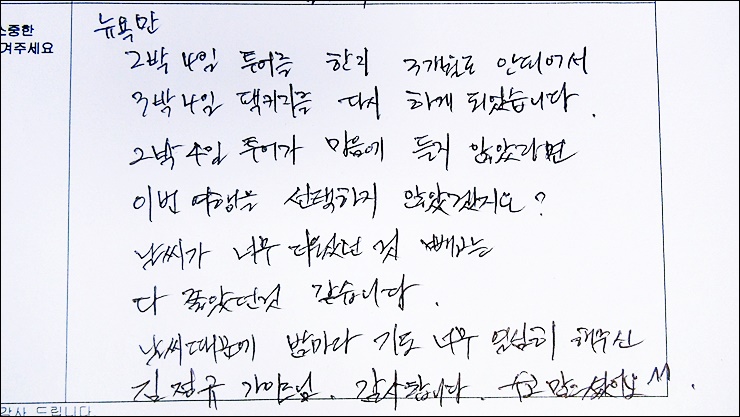 소중한
겨주세요
뉴욕만
2박 4일 투어를 한지 3개월도 안되어서
3박 4일 팩키지를 다시 하게 되었습니다.
2박 4일 투어가 마음에 들지 않았더라면
이번 여행을 선택하지 않았겠지요?
날씨가 너무 더웠던 것 빼고는
다 좋았던것 같습니다.
날씨때문에 밤마다 기도 너무 열심히 해주신
김정규 가이드님. 감사합니다. 수고 많으셨어요
감사 드립니다